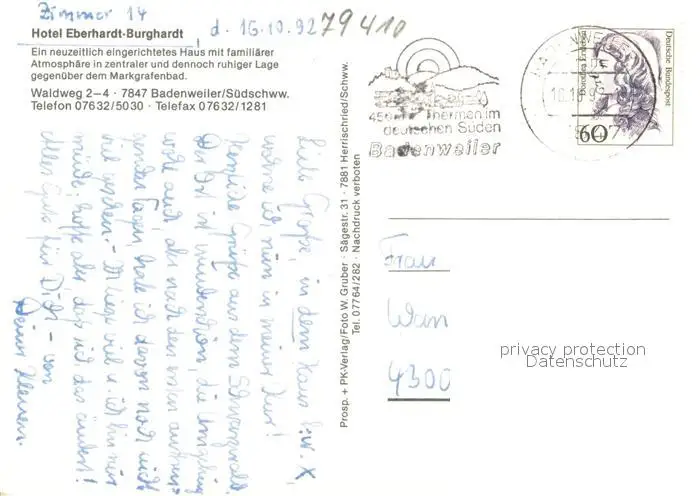 Zimmer 14
d. 16.10.92
79410
Hotel Eberhardt-Burghardt
Ein neuzeitlich eingerichtetes Haus mit familiärer
Atmosphäre in zentraler und dennoch ruhiger Lage
gegenüber dem Markgrafenbad.
Waldweg 2–4 · 7847 Badenweiler/Südschww.
Telefon 07632/5030 · Telefax 07632/1281
Liebe in dem Haus X,
wohne ich nun in meiner Kur!
Grüße aus dem Schwarzwald.
Der Ort ist die Umgebung
wohl auch, aber nach den ersten
Tagen habe ich davon noch nicht
viel gesehen. – Ich liege viel u. ich bin nur
müde, hoffe aber, daß sich das ändert!
Alles Gute für Dich – von
Deiner
Prosp. + PK-Verlag/Foto W. Gruber · Sägestr. 31 · 7881 Herrischried/Schww.
Tel. 07764/282 · Nachdruck verboten
Thermen im
deutschen Süden
Badenweiler
BADENWEILER
7847
Deutsche Bundespost
60
Frau
4300
privacy protection
Datenschutz